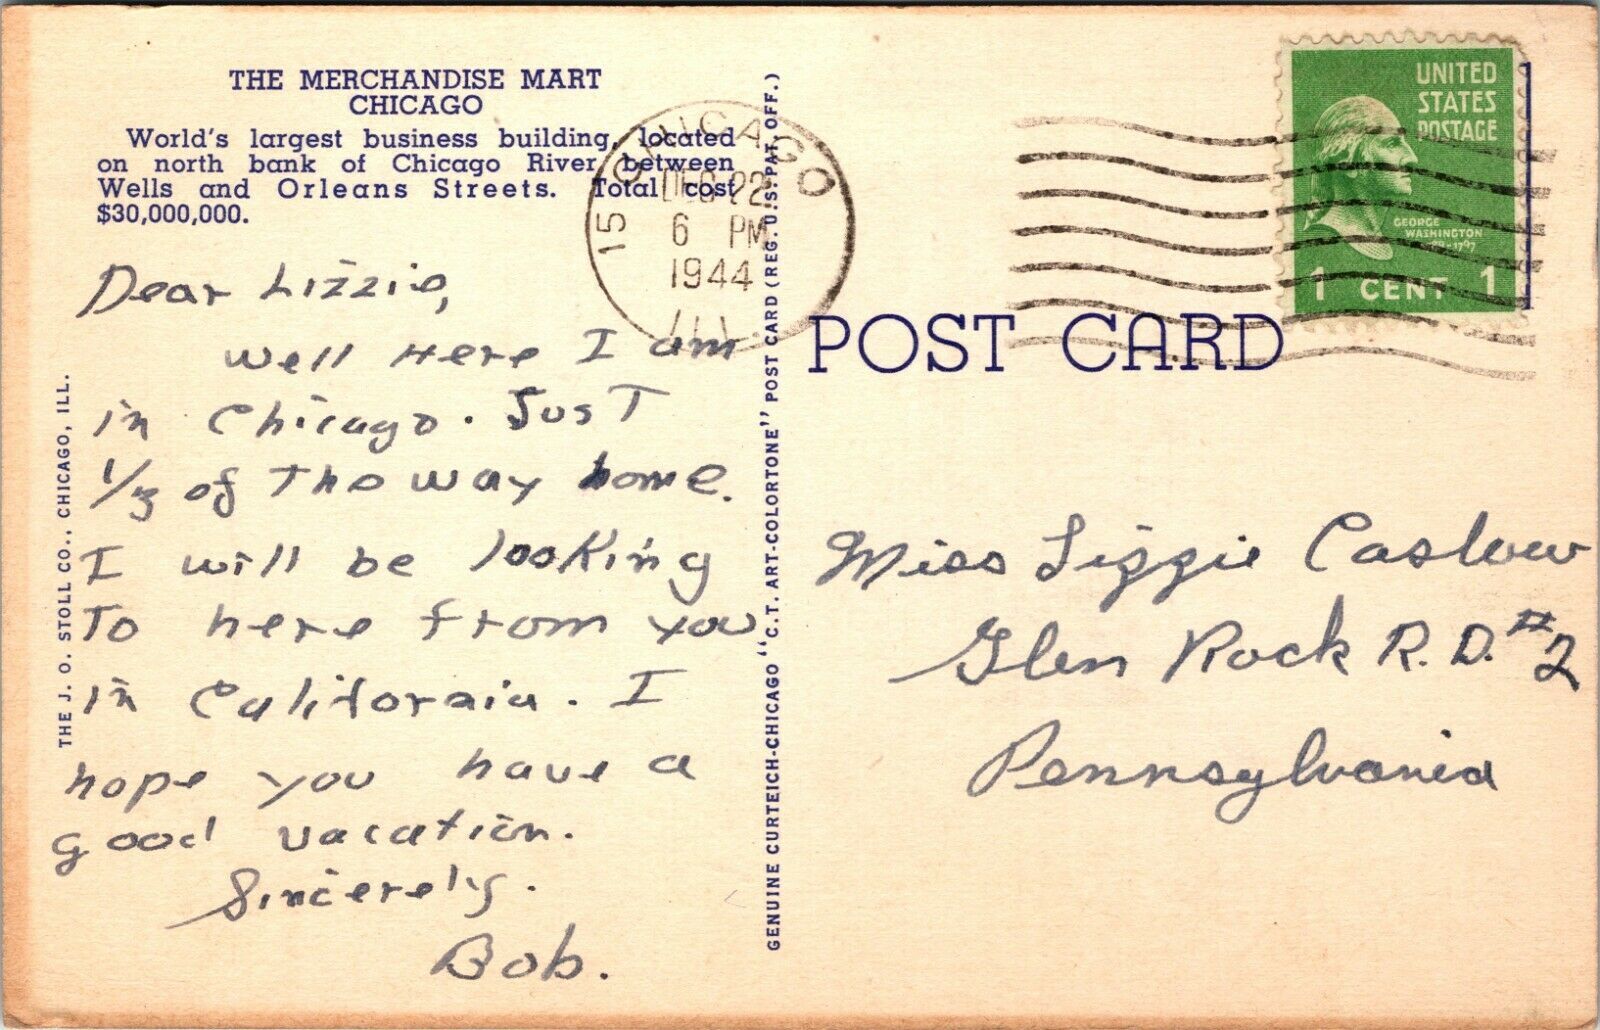 THE MERCHANDISE MART
CHICAGO
World's largest business building, located
on north bank of Chicago River between
Wells and Orleans Streets. Total cost
$30,000,000.
Dear Lizzie,
Well Here I am
in Chicago. Just
1/3 of the way home.
I will be looking
To here from you
in California. I
hope you have a
good vacation.
Sincerely.
Bob.
THE J. O. STOLL CO., CHICAGO, ILL.
GENUINE CURTEICH-CHICAGO "C.T. ART-COLORTONE" POST CARD (REG. U.S. PAT. OFF.)
CHICAGO
15
DEC 22
6 PM
1944
ILL
UNITED
STATES
POSTAGE
GEORGE
WASHINGTON
1789-1797
1 CENT 1
POST CARD
Miss Lizzie Caslow
Glen Rock R.D. #2
Pennsylvania